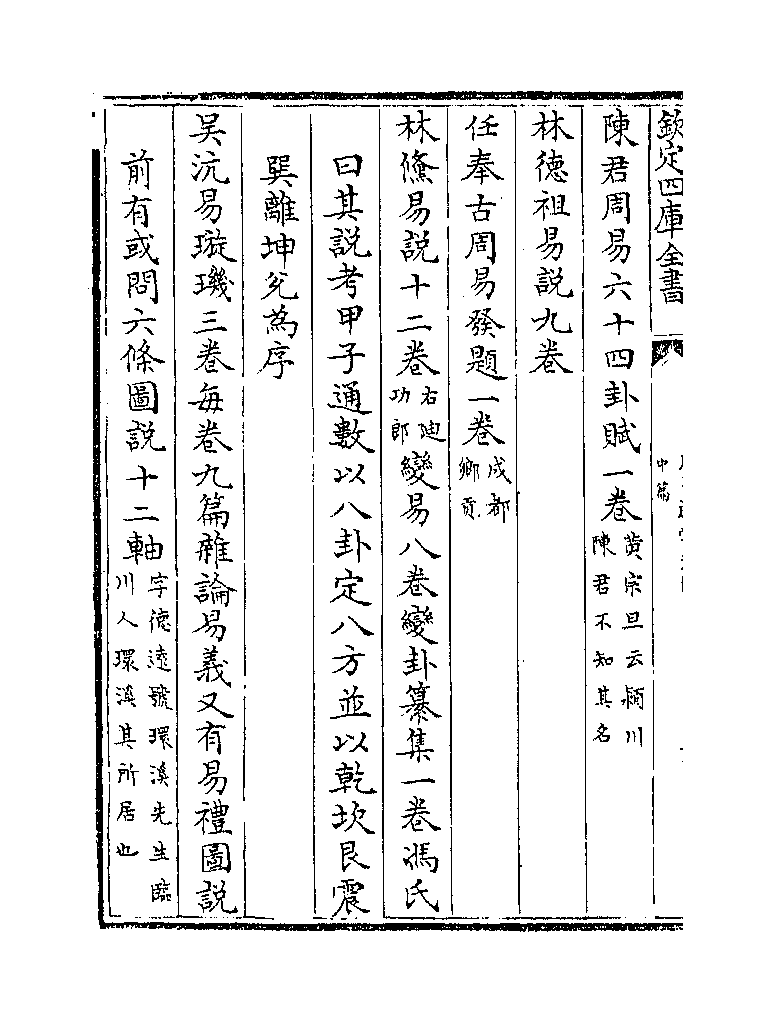 欽定四庫全書
中篇
陳君周易六十四卦賦一卷黃宗旦云潁川陳君不知其名
林德祖易說九卷
任奉古周易發題一卷成都鄉貢
林儵易說十二卷右迪功郎變易八卷變卦纂集一卷馮氏
曰其說考甲子通數以八卦定八方並以乾坎艮震
巽離坤兊為序
吳沆易璇璣三卷每卷九篇雜論易義又有易禮圖說
前有或問六條圖說十二軸字德遠號環溪先生臨川人環溪其所居也